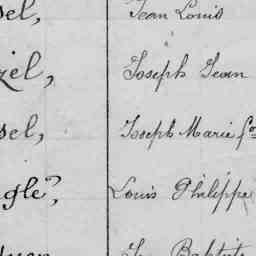 sel, Jean Louis
zel, Joseph Jean
sel, Joseph Marie fco
gle, Louis Philippe
Jn Baptiste